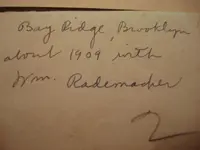 Bay Ridge, Brooklyn
about 1909 with
Wm. Rademacher